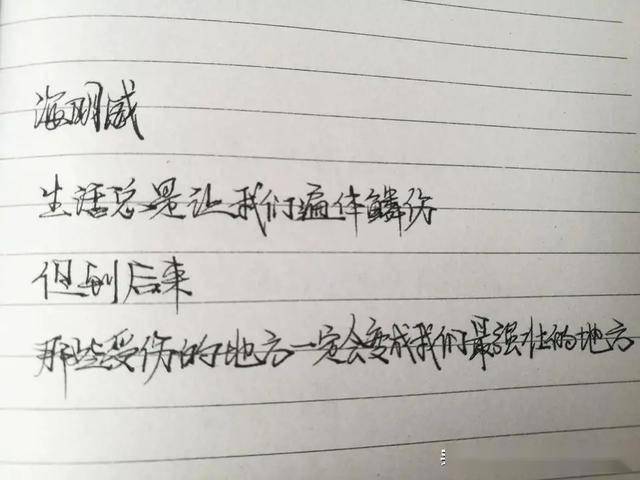 海明威
生活总是让我们遍体鳞伤
但到后来
那些受伤的地方一定会变成我们最强壮的地方